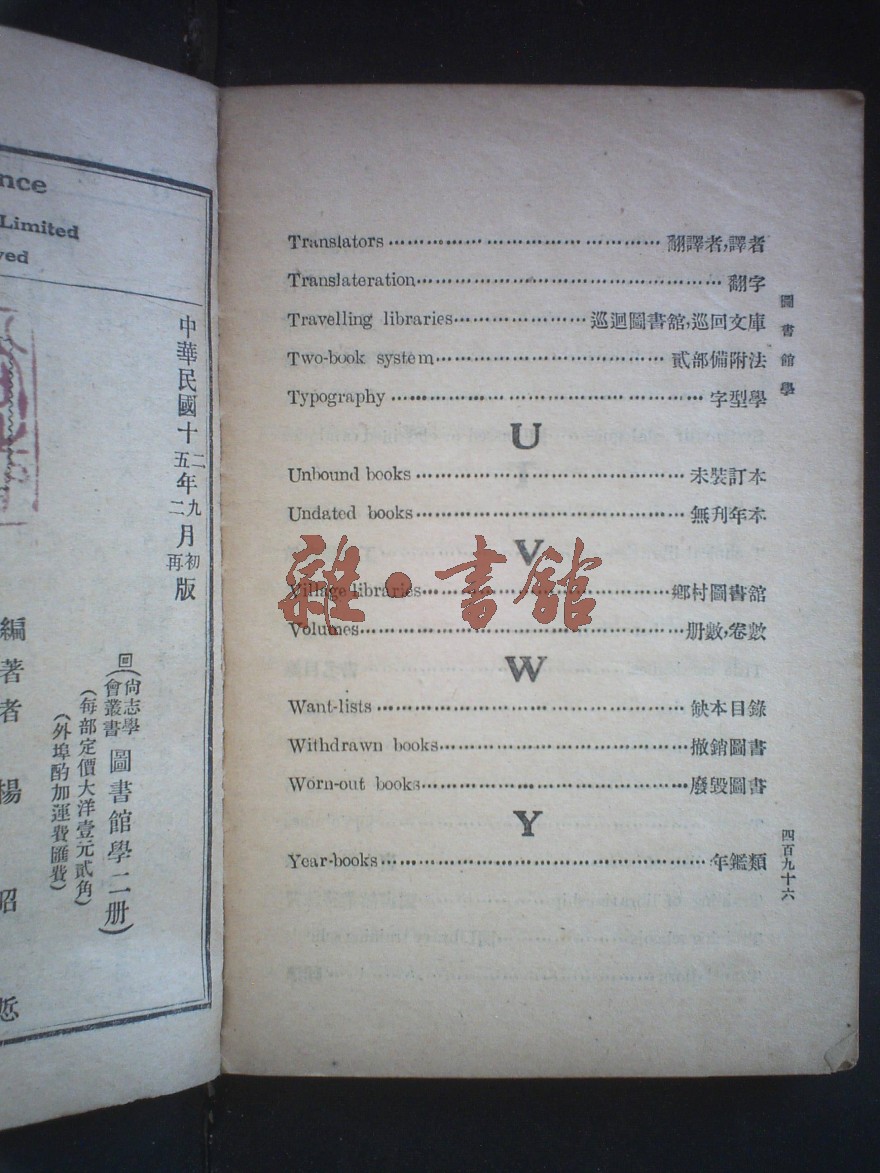 nce
Limited
ved
中華民國十二年九月初版
五 二 再
編著者 楊昭悊
回(尚志學會叢書)圖書館學二册)
(每部定價大洋壹元貳角)
(外埠酌加運費匯費)
圖書館學
Translators 翻譯者,譯者
Translateration 翻字
Travelling libraries 巡迴圖書舘,巡回文庫
Two-book system 貳部備附法
Typography 字型學
U
Unbound books 未裝訂本
Undated books 無刋年本
V
Village libraries 鄉村圖書舘
Volumes 册數,卷數
W
Want-lists 缺本目錄
Withdrawn books 撤銷圖書
Worn-out books 廢毀圖書
Y
Year-books 年鑑類
四百九十六
雜·書舘